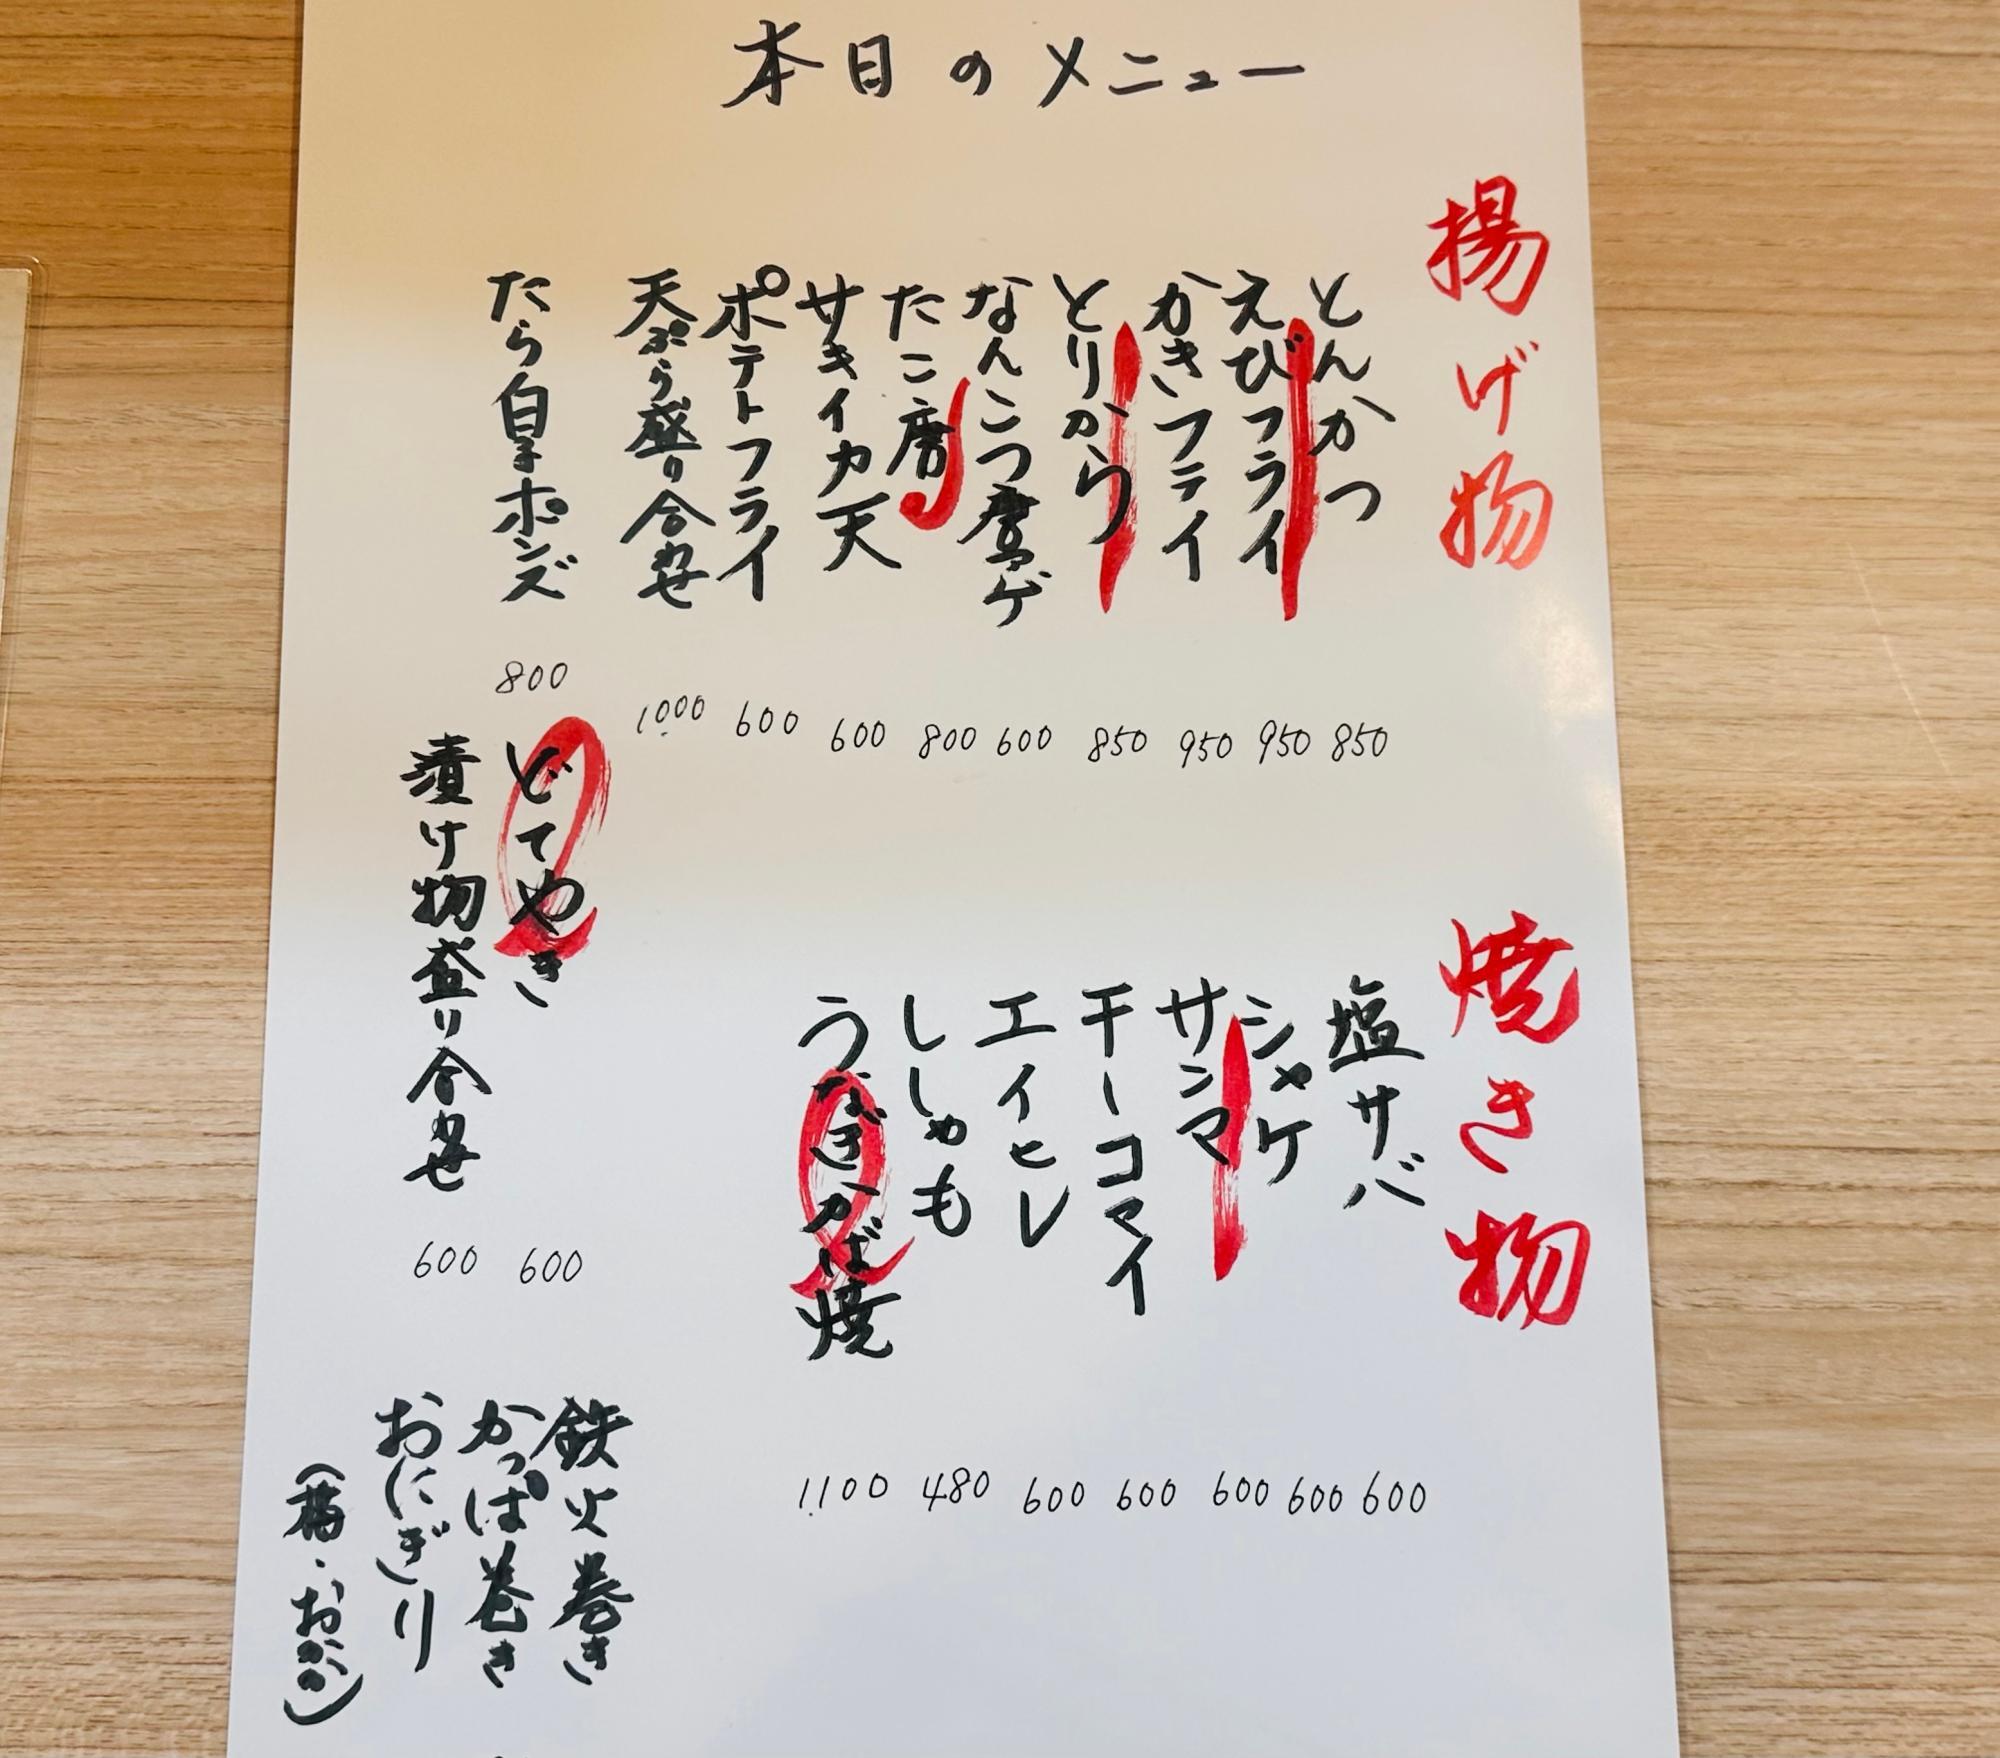 本日のメニュー
揚げ物
とんかつ 850
えびフライ 950
かきフライ 950
とりから 850
なんこつ唐揚ゲ 600
たこ唐 800
サキイカ天 600
ポテトフライ 600
天ぷら盛り合わせ 1000
たら白子ポンズ 800
焼き物
塩サバ 600
シャケ 600
サンマ 600
干しコマイ 600
エイヒレ 600
ししゃも 480
うなぎかば焼 1100
どてやき 600
漬け物盛り合わせ 600
鉄火巻き
かっぱ巻き
おにぎり
(梅・おかか)